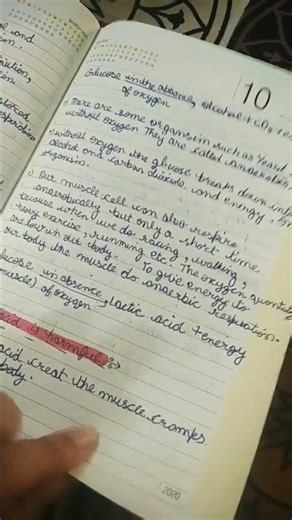 and
10
Glucose in the absence, alcohol + CO2 +
of oxygen
There are some organism such as Yeast
without oxygen They are called anaerobic
without oxygen the glucose breaks down into
alcohol and carbon dioxide and energy, 
organism.
Our muscle cell can also respire
anaerobically but only a short time,
because when we do racing, walking,
heavy exercise, running etc. The oxygen quantity
are low in our body. To give energy to
our body the muscle do anaerobic respiration.
in absence, lactic acid + energy
muscle) of oxygen
acid is harmful :->
acid creat the muscle cramps
body.
2020